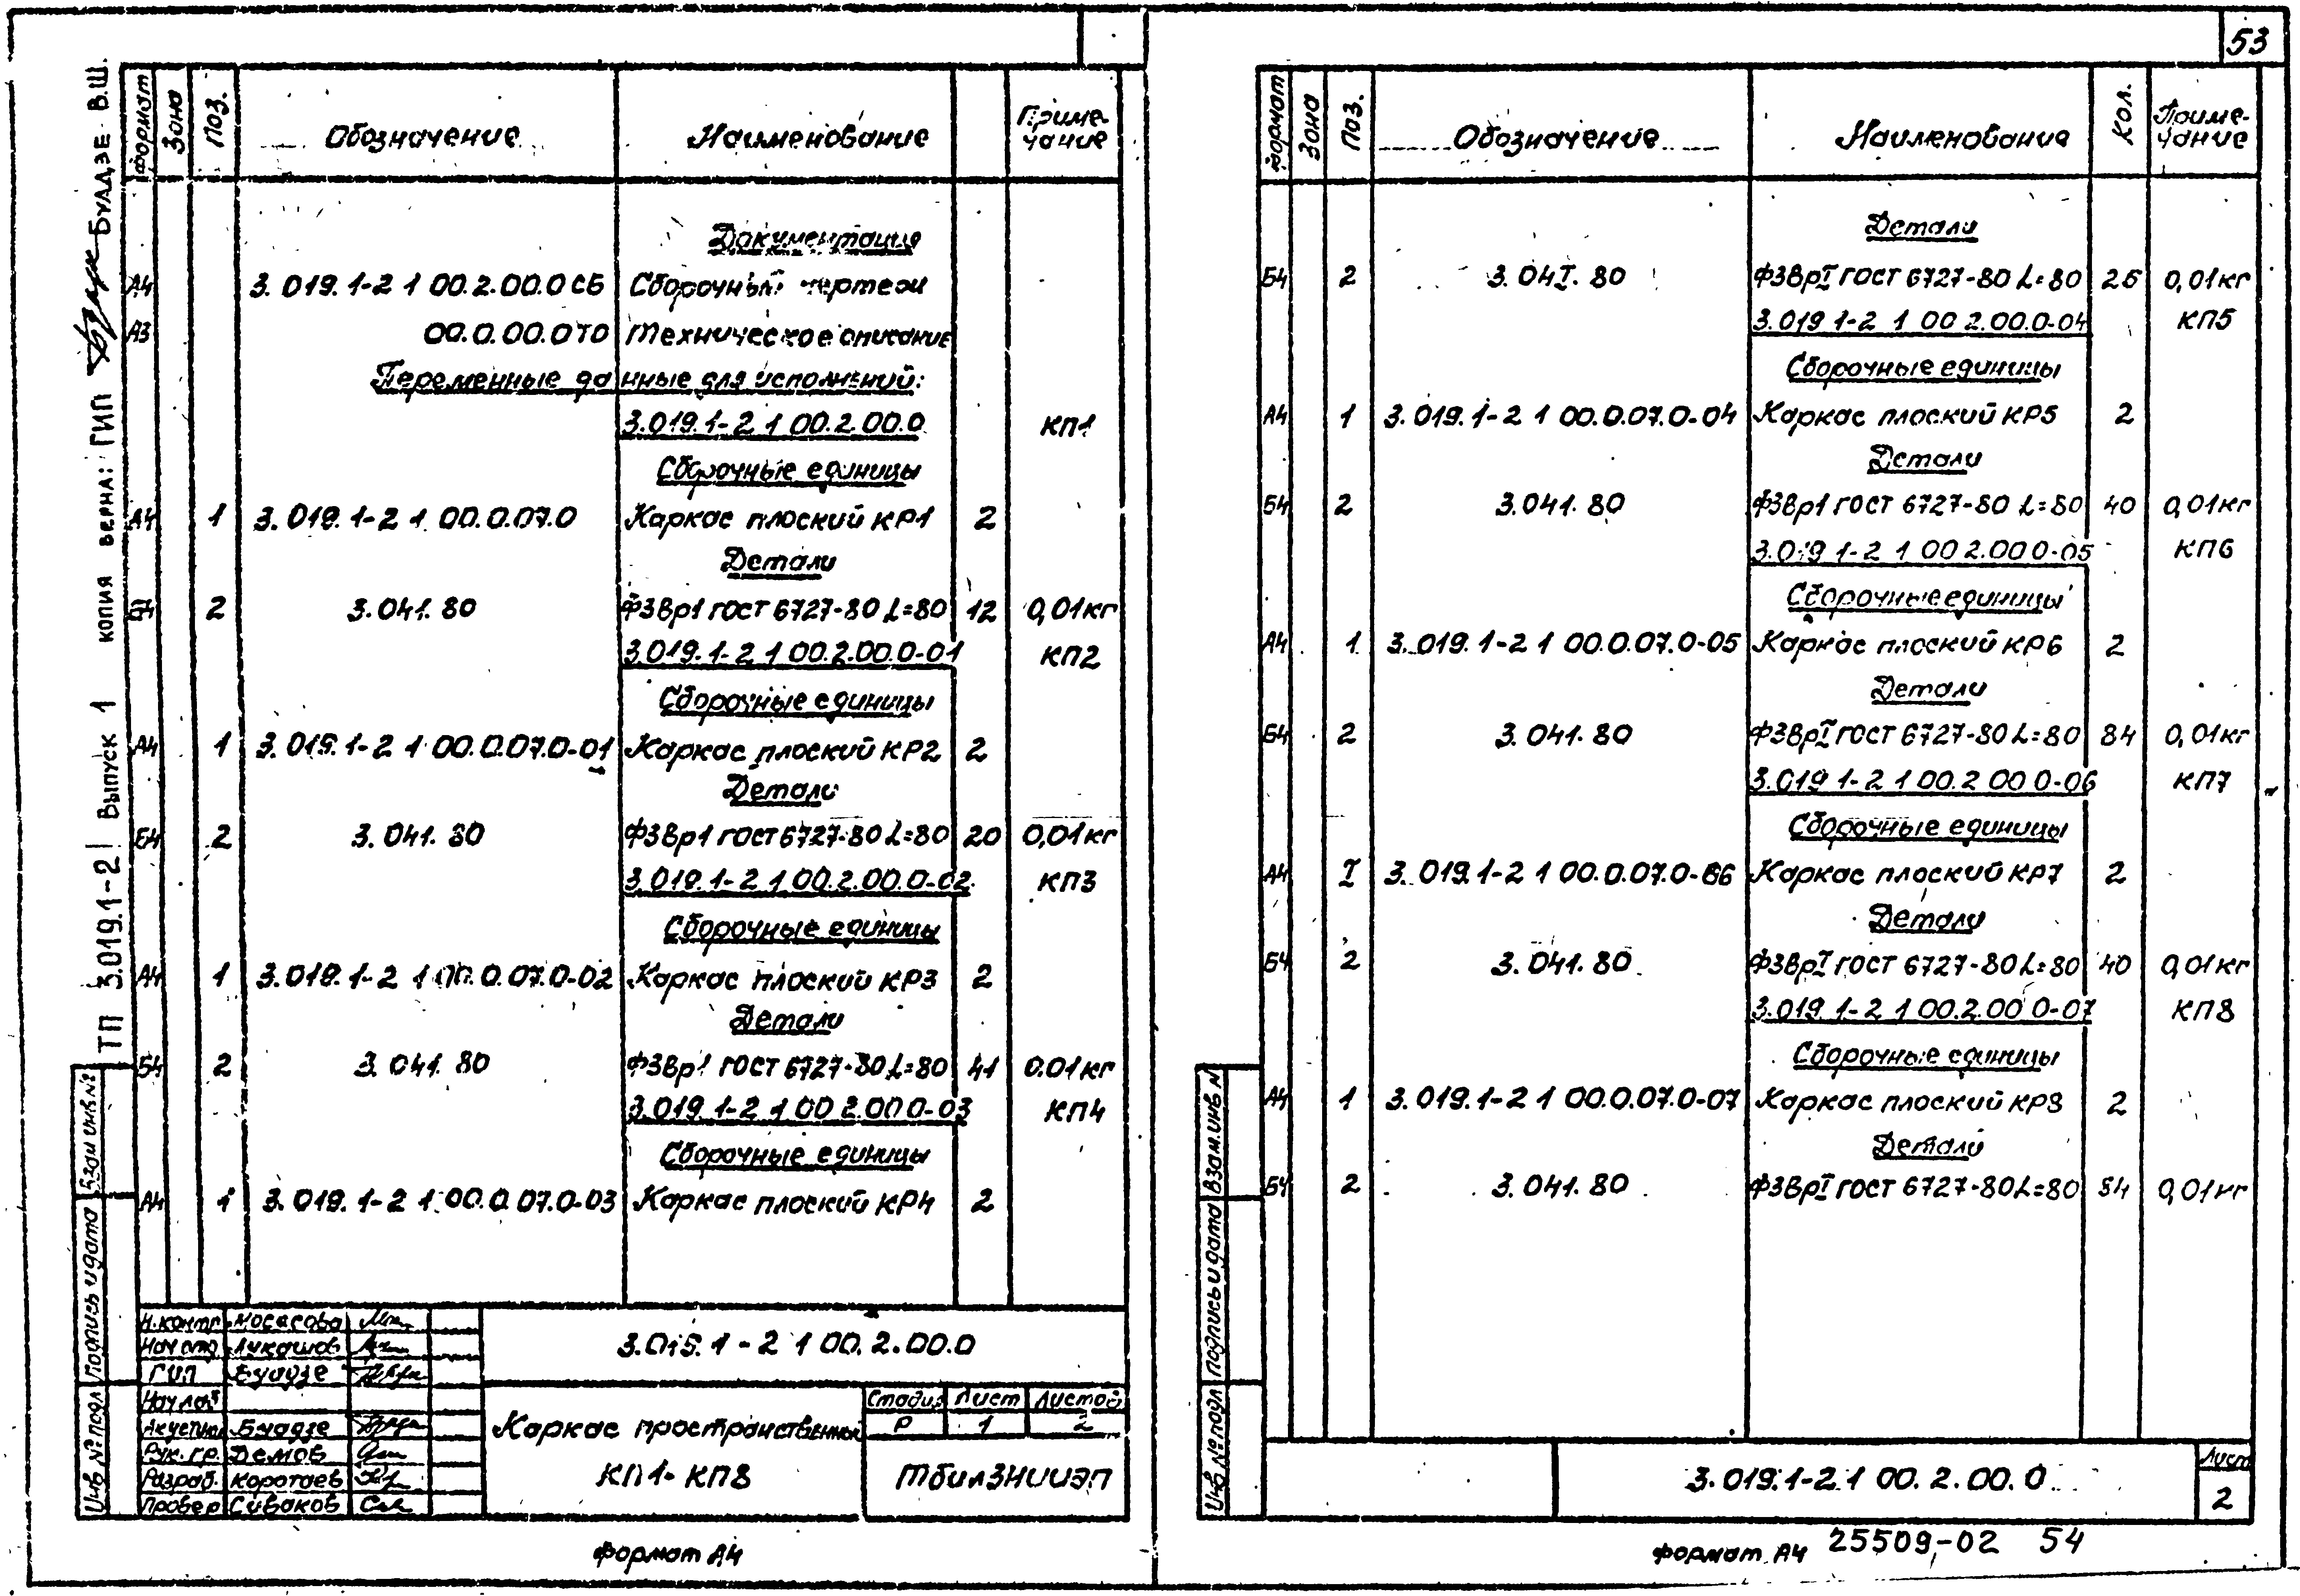 53
ТП 3.019.1-2 Выпуск 1 копия верна: ГИП Буадзе В.Ш.
Формат Зона Поз. Обозначение Наименование Приме-
чание
Документация
А4 3.019.1-2 1 00.2.00.0 СБ Сборочный чертеж
А3 00.0.00.0 ТО Техническое описание
Переменные данные для исполнений:
3.019.1-2 1 00.2.00.0 КП1
Сборочные единицы
А4 1 3.019.1-2 1 00.0.07.0 Каркас плоский КР1 2
Детали
Б4 2 3.041.80 Ф3Вр1 ГОСТ 6727-80 L=80 12 0,01кг
3.019.1-2 1 00.2.00.0-01 КП2
Сборочные единицы
А4 1 3.019.1-2 1 00.0.07.0-01 Каркас плоский КР2 2
Детали
Б4 2 3.041.80 Ф3Вр1 ГОСТ 6727-80 L=80 20 0,01кг
3.019.1-2 1 00.2.00.0-02 КП3
Сборочные единицы
А4 1 3.019.1-2 1 00.0.07.0-02 Каркас плоский КР3 2
Детали
Б4 2 3.041.80 Ф3Вр1 ГОСТ 6727-80 L=80 41 0.01кг
3.019.1-2 1 00 2.00 0-03 КП4
Сборочные единицы
А4 1 3.019.1-2 1 00.0.07.0-03 Каркас плоский КР4 2
Инв № подл Подпись и дата Взам инв №
Н.контр. Мосесова
Нач отд Лукашов
ГИП Буадзе
Нач лаб
Акустик Буадзе
Рук. гр. Демов
Разраб. Коротаев
Провер Сиваков
3.019.1-2 1 00.2.00.0
Каркас пространственный
КП1-КП8
Стадия Лист Листов
Р 1 2
ТбилЗНИИЭП
Формат А4
Формат Зона Поз. Обозначение Наименование Кол. Приме-
чание
Детали
Б4 2 3.04I.80 Ф3ВрI ГОСТ 6727-80 L=80 26 0,01кг
3.019 1-2 1 00 2.00.0-04 КП5
Сборочные единицы
А4 1 3.019.1-2 1 00.0.07.0-04 Каркас плоский КР5 2
Детали
Б4 2 3.041.80 Ф3Вр1 ГОСТ 6727-80 L=80 40 0,01кг
3.019 1-2 1 00 2.00 0-05 КП6
Сборочные единицы
А4 1 3.019.1-2 1 00.0.07.0-05 Каркас плоский КР6 2
Детали
Б4 2 3.041.80 Ф3ВрI ГОСТ 6727-80 L=80 84 0,01кг
3.019 1-2 1 00.2 00 0-06 КП7
Сборочные единицы
А4 I 3.019.1-2 1 00.0.07.0-06 Каркас плоский КР7 2
Детали
Б4 2 3.041.80 Ф3ВрI ГОСТ 6727-80 L=80 40 0,01кг
3.019.1-2 1 00.2.00 0-07 КП8
Сборочные единицы
А4 1 3.019.1-2 1 00.0.07.0-07 Каркас плоский КР8 2
Детали
Б4 2 3.041.80 Ф3ВрI ГОСТ 6727-80 L=80 54 0,01кг
Инв № подл Подпись и дата Взам.инв №
3.019.1-2 1 00.2.00.0
Лист
2
Формат А4 25509-02 54